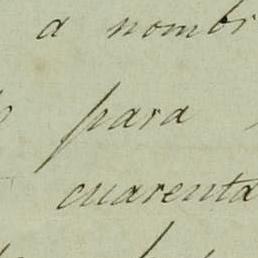 a nombr
para
cuarenta